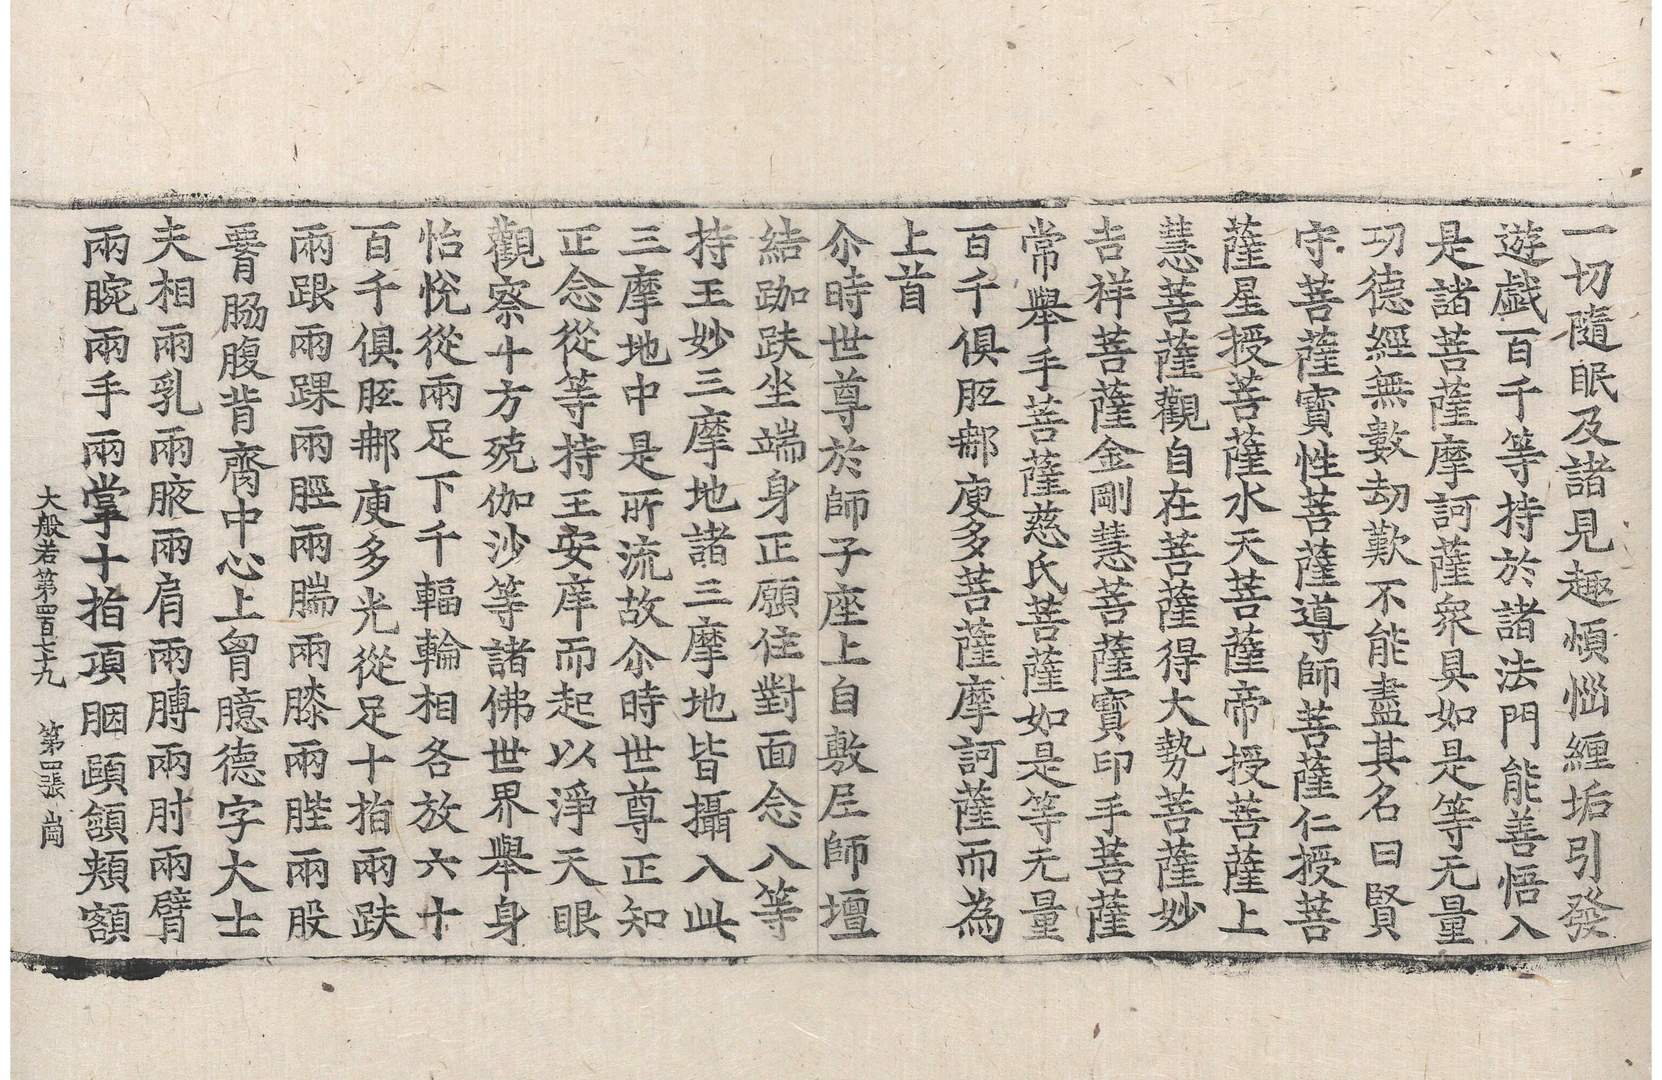 一切隨眠及諸見趣煩惱纏垢引發
遊戲百千等持於諸法門能善悟入
是諸菩薩摩訶薩衆具如是等无量
功德經無數劫歎不能盡其名曰賢
守菩薩寶性菩薩導師菩薩仁授菩
薩星授菩薩水天菩薩帝授菩薩上
慧菩薩觀自在菩薩得大勢菩薩妙
吉祥菩薩金剛慧菩薩寶印手菩薩
常舉手菩薩慈氏菩薩如是等无量
百千俱胝那庾多菩薩摩訶薩而為
上首
尒時世尊於師子座上自敷尼師壇
結跏趺坐端身正願住對面念入等
持王妙三摩地諸三摩地皆攝入此
三摩地中是所流故尒時世尊正知
正念從等持王安庠而起以淨天眼
觀察十方殑伽沙等諸佛世界舉身
怡悅從兩足下千輻輪相各放六十
百千俱胝那庾多光從足十指兩趺
兩跟兩踝兩脛兩腨兩膝兩䏶兩股
䙅肠腹背齊中心上𦙄臆德字大士
夫相兩乳兩腋兩肩兩髆兩肘兩臂
兩腕兩手兩掌十指項胭頤頷頰額
大般若第四百七十九 第四張 崗